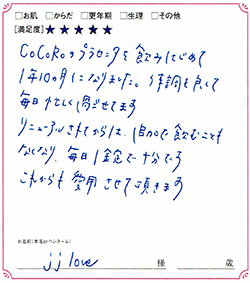 □お肌 □からだ □更年期 □生理 □その他
[満足度]★★★★★
CoCoRoのプラセンタを飲みはじめて
1年10ヶ月になりました。体調も良くて
毎日忙しく過ごせてます
リニューアルされてからは、1日おきで飲むことも
なくなり、毎日1錠で十分です
これからも愛用させて頂きます
お名前(本名orペンネーム)
jj love 様 歳